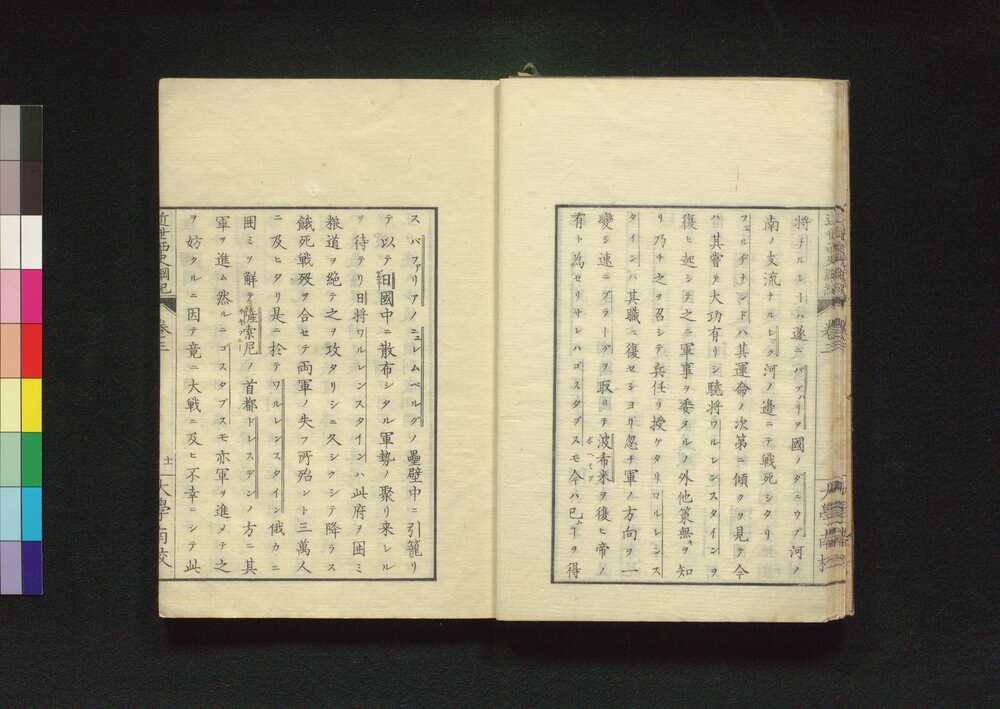 将チルレーハ遂ニバアハリヲ國ノダニウブ河ノ
南ノ支流ナルレック河ノ邉ニテ戦死シタリ
フェルヂナンドハ其運命ノ次第ニ傾クヲ見テ今
ハ其嘗テ大功有リシ驍将ワルレンスタインヲ
復ヒ起シテ之ニ軍事ヲ委ヌルノ外他策無ヲ知
リ乃チ之ヲ召シテ兵任ヲ授ケタリワルレンス
タインハ其職ニ復セシヨリ忽チ軍ノ方向ヲ一
變シ速ニプラーグヲ取リ波布米ヲ復ヒ帝ノ
有ト為セリサレハゴスタブスモ今ハ已ヿヲ得
スバアリアノニュレムベルグノ壘壁中ニ引籠リ
テ以テ日國中ニ散布シタル軍勢ノ聚リ来レル
ヲ待テリ日将ワルレンスタインハ此府ヲ囲ミ
粮道ヲ絶テ之ヲ攻タリシニ久シクシテ降ラス
餓死戦歿ヲ合セテ両軍ノ失フ所殆ント三萬人
ニ及ヒタリ是ニ於テワルレンスタイン俄カニ
囲ミヲ解テ薩索尼ノ首都ドレスデンノ方ニ其
軍ヲ進ム然ルニゴスタブスモ亦軍ヲ進メテ之
ヲ妨クルニ因テ竟ニ大戦ニ及ヒ不幸ニシテ此
近世西史綱紀 巻三 十一 大學南校